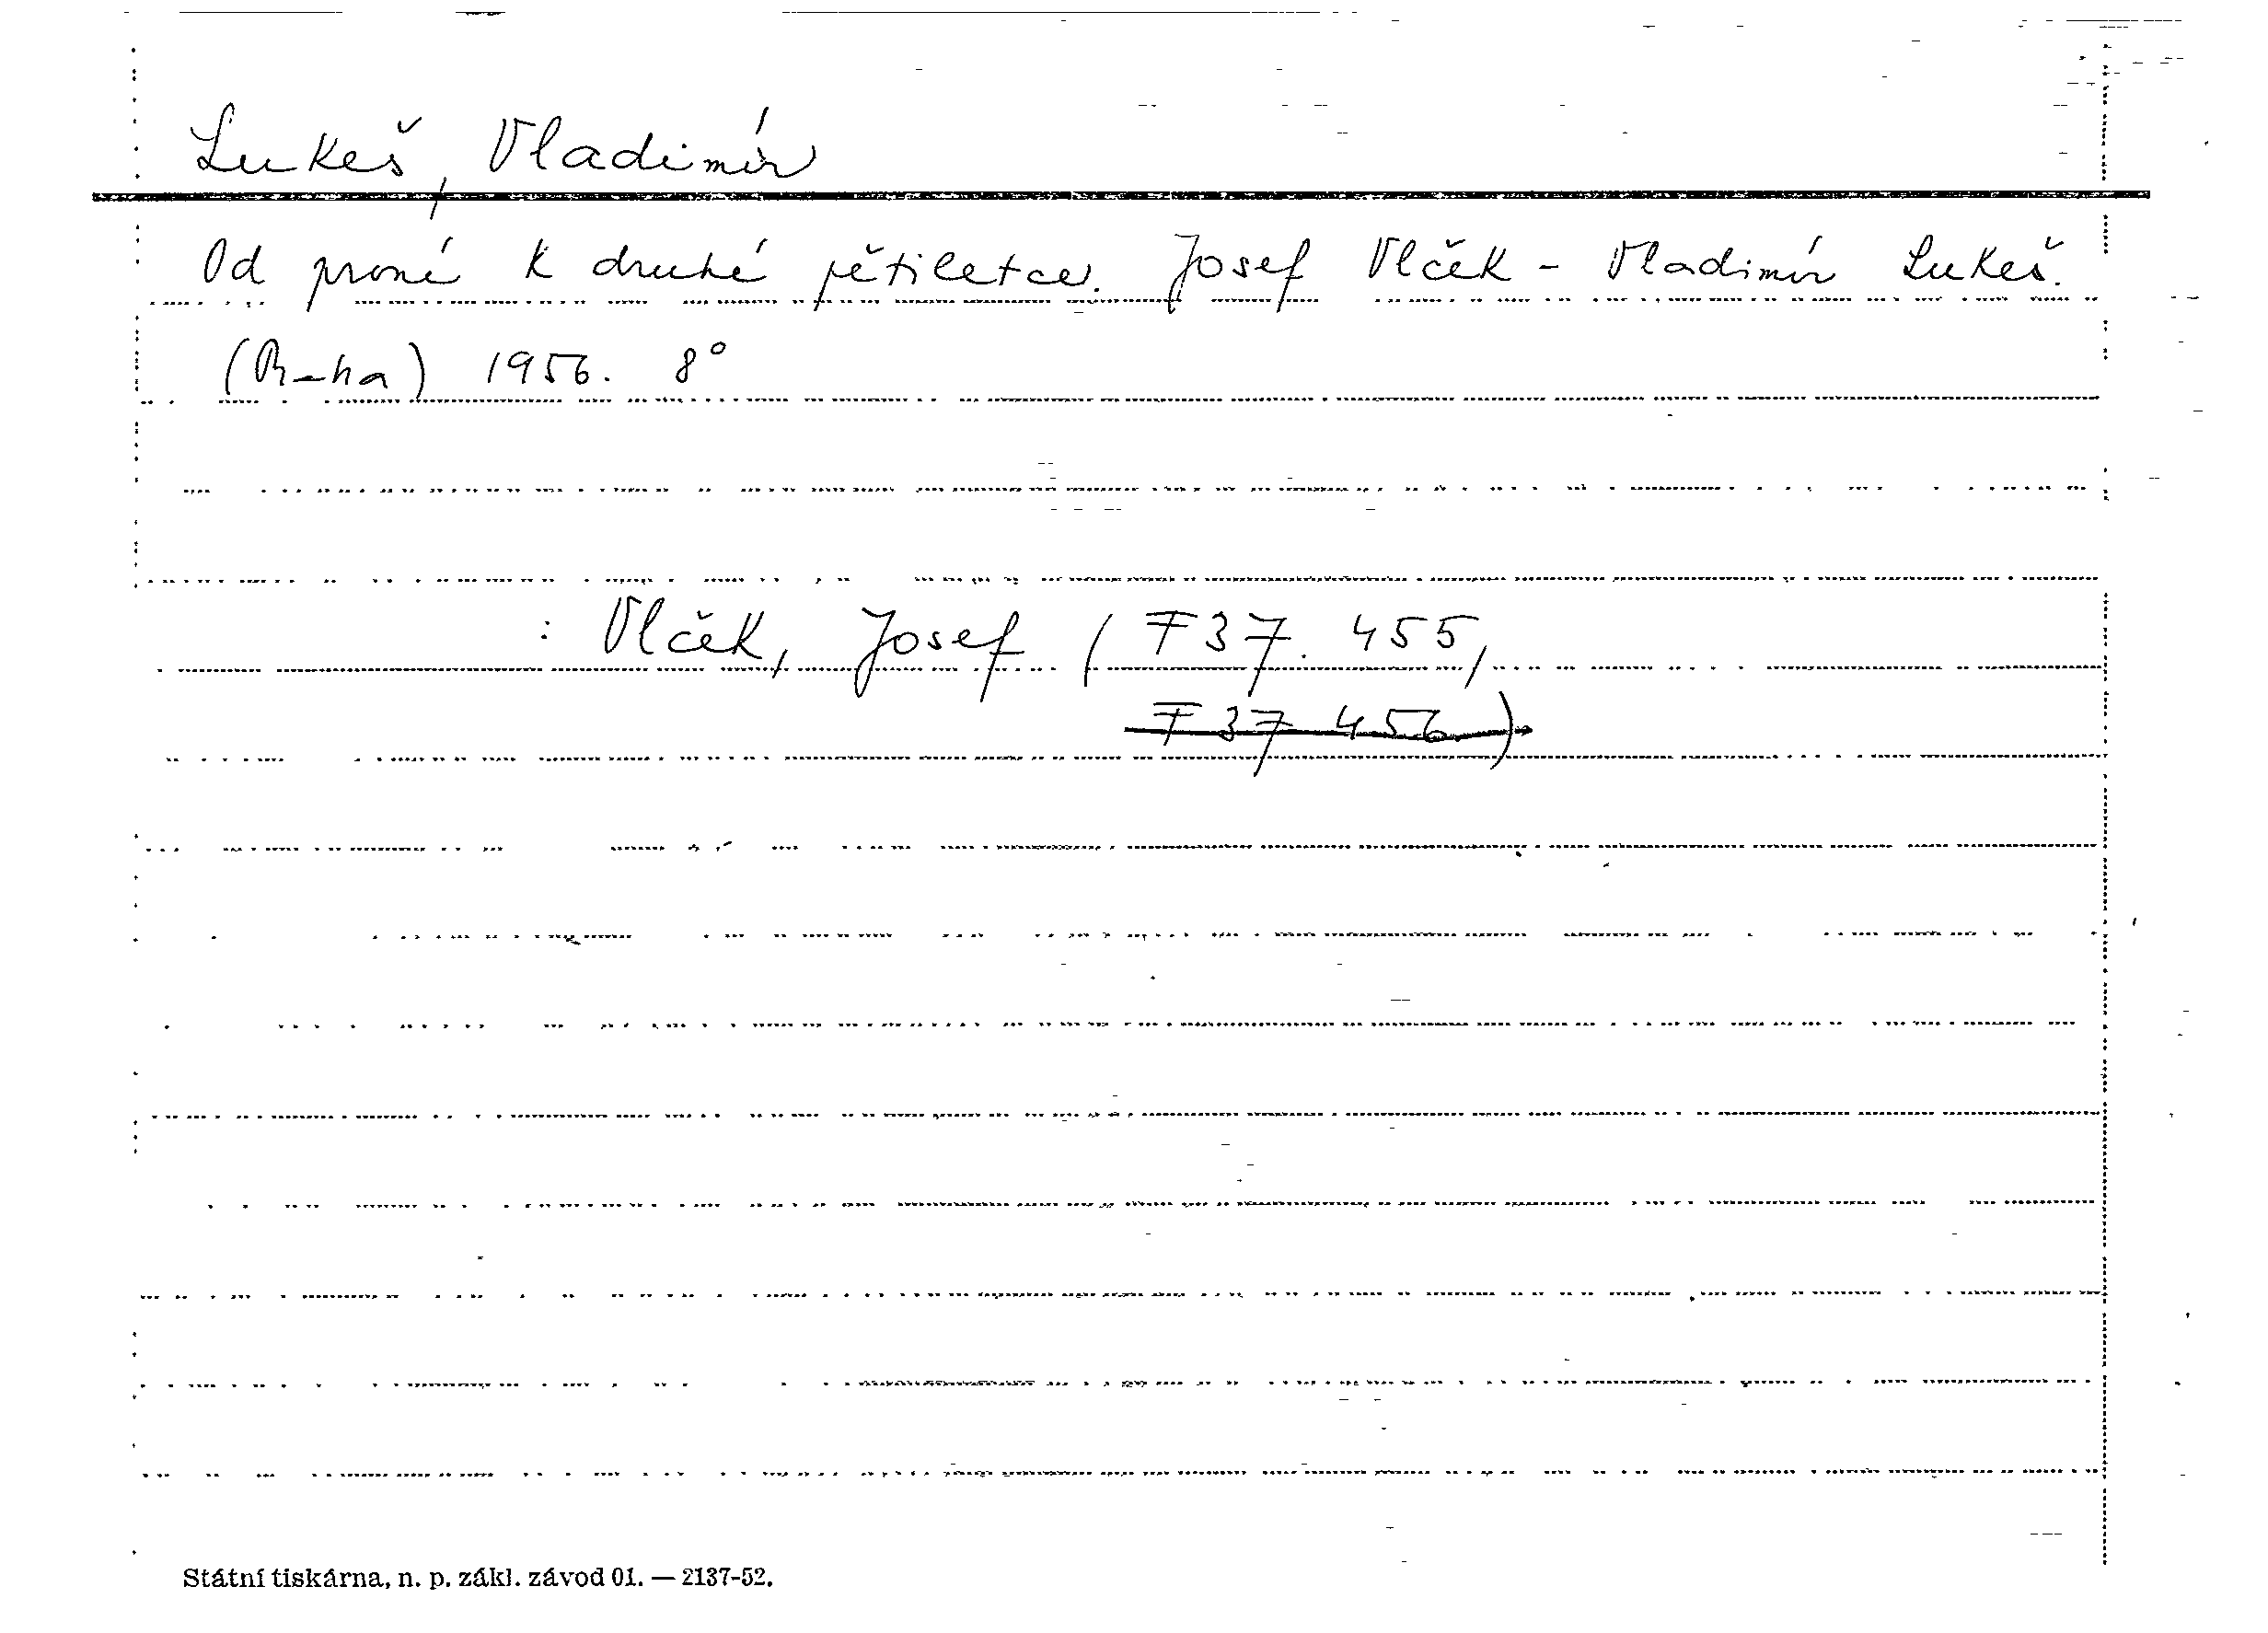 Lukeš, Vladimír
Od prvné k druhé pětiletce. Josef Vlček - Vladimír Lukeš.
(Praha) 1956. 8°
: Vlček, Josef (F 37.455,
F 37 456)
Státní tiskárna, n. p. zákl. závod 01. — 2137-52.